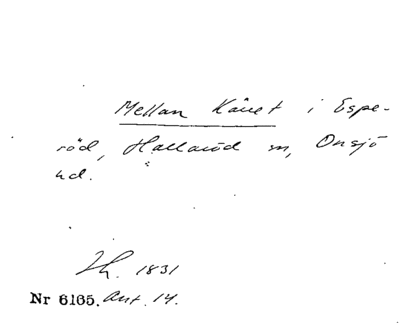 Mellan Käret i Espe-
röd, Hallaröd sn, Onsjö
hd.
Th. 1831
Nr 6165. Ant. 14.